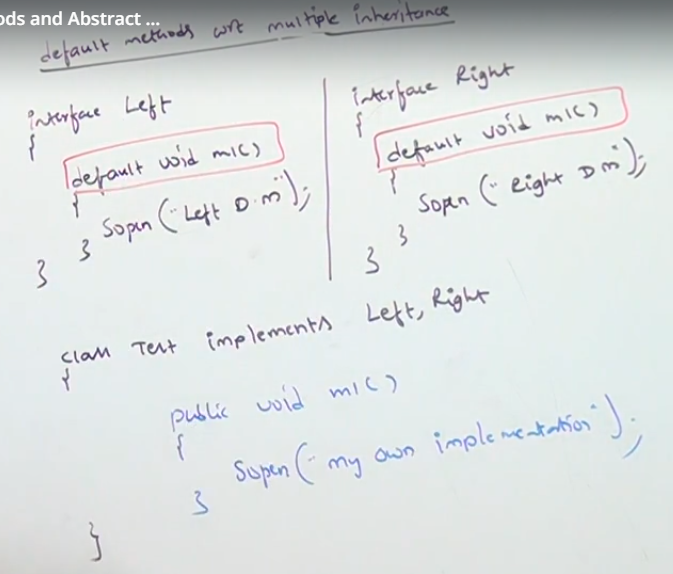 ods and Abstract ...
default methods wrt multiple inheritance
interface Left
{
default void m1()
{
Sopln ("Left D.m");
}
}
interface Right
{
default void m1()
{
Sopln ("Right D m");
}
}
class Test implements Left, Right
{
public void m1()
{
Sopln ("my own implementation");
}
}